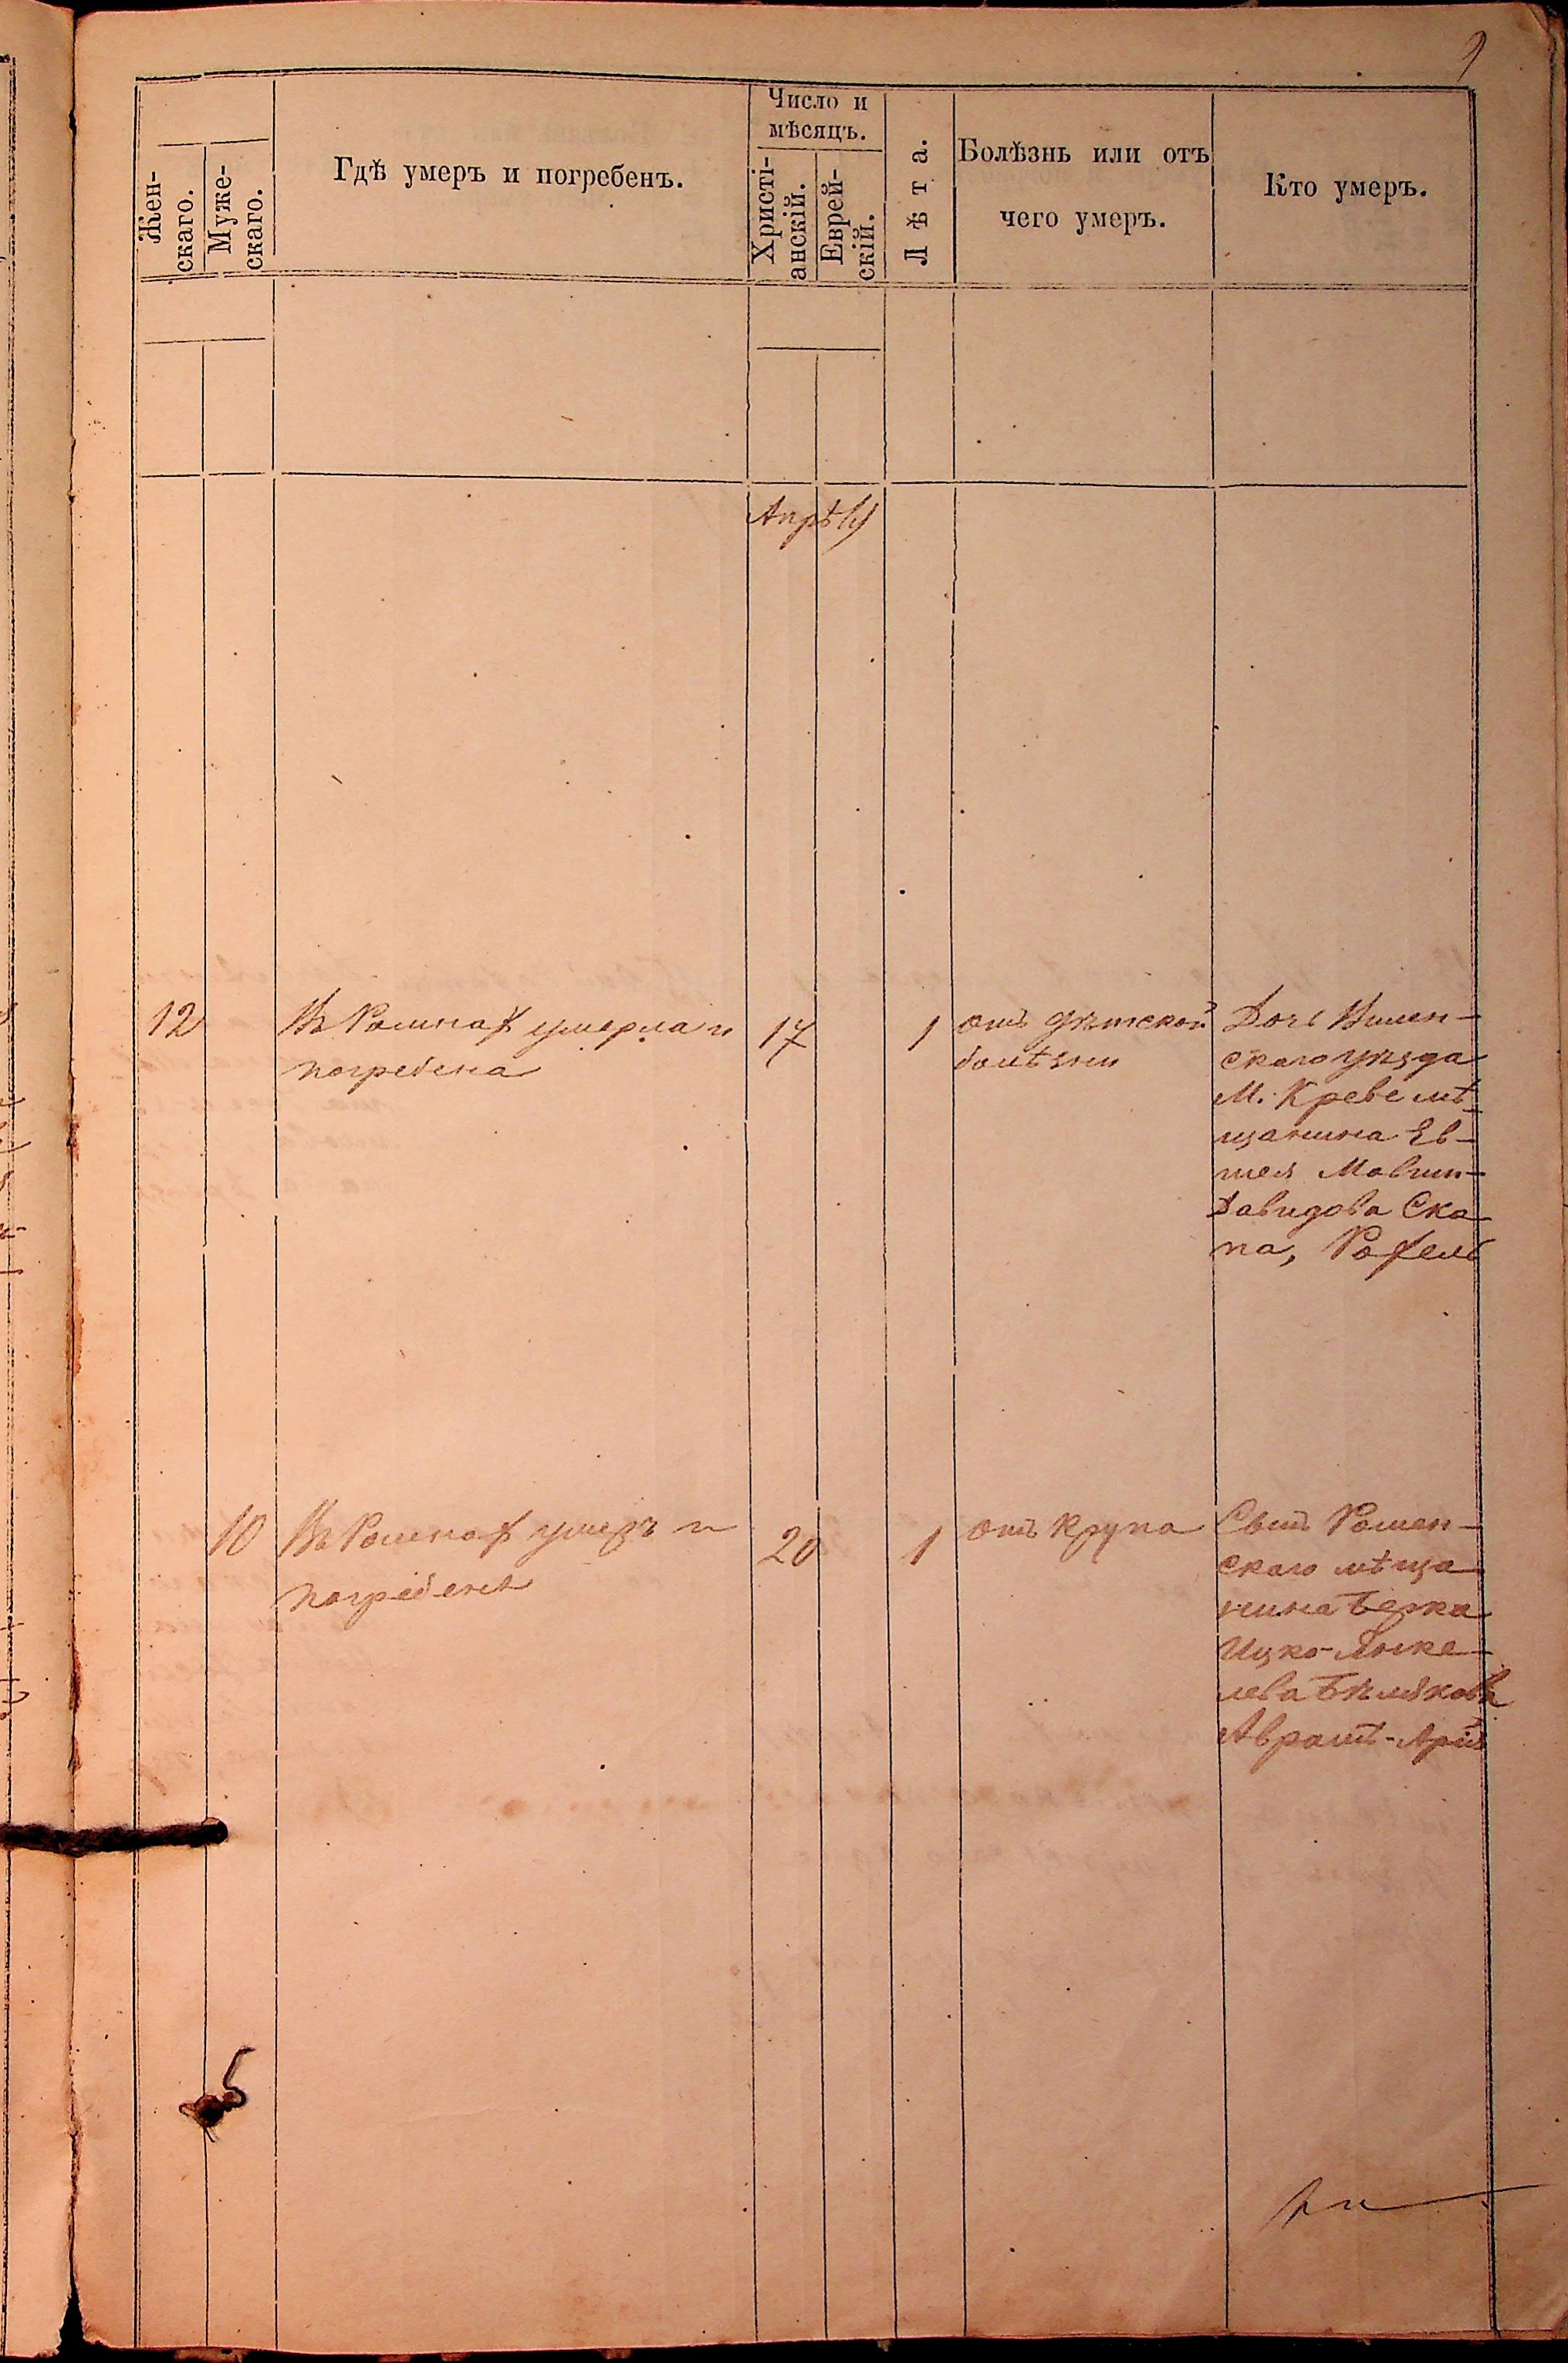 9
Жен-
скаго.
Муже-
скаго.
Гдѣ умеръ и погребенъ.
Число и
мѣсяцъ.
Христі-
анскій.
Еврей-
скій.
Лѣта.
Болѣзнь или отъ
чего умеръ.
Кто умеръ.
Апрѣль
12
Въ Ромнах умерла и
погребена
17
1
отъ дѣтской
болѣзни
Дочь Вилен-
скаго уѣзда
М. Креве мѣ-
щанина Ев-
Давидова Ска
па, Рохель
10
Въ Ромнах умеръ и
погребенъ
20
1
отъ Крупа
Сынъ Ромен-
скаго мѣща
нина Берка
Ицко-Янке-
лева Бѣлякова
Аврамъ-Арiя